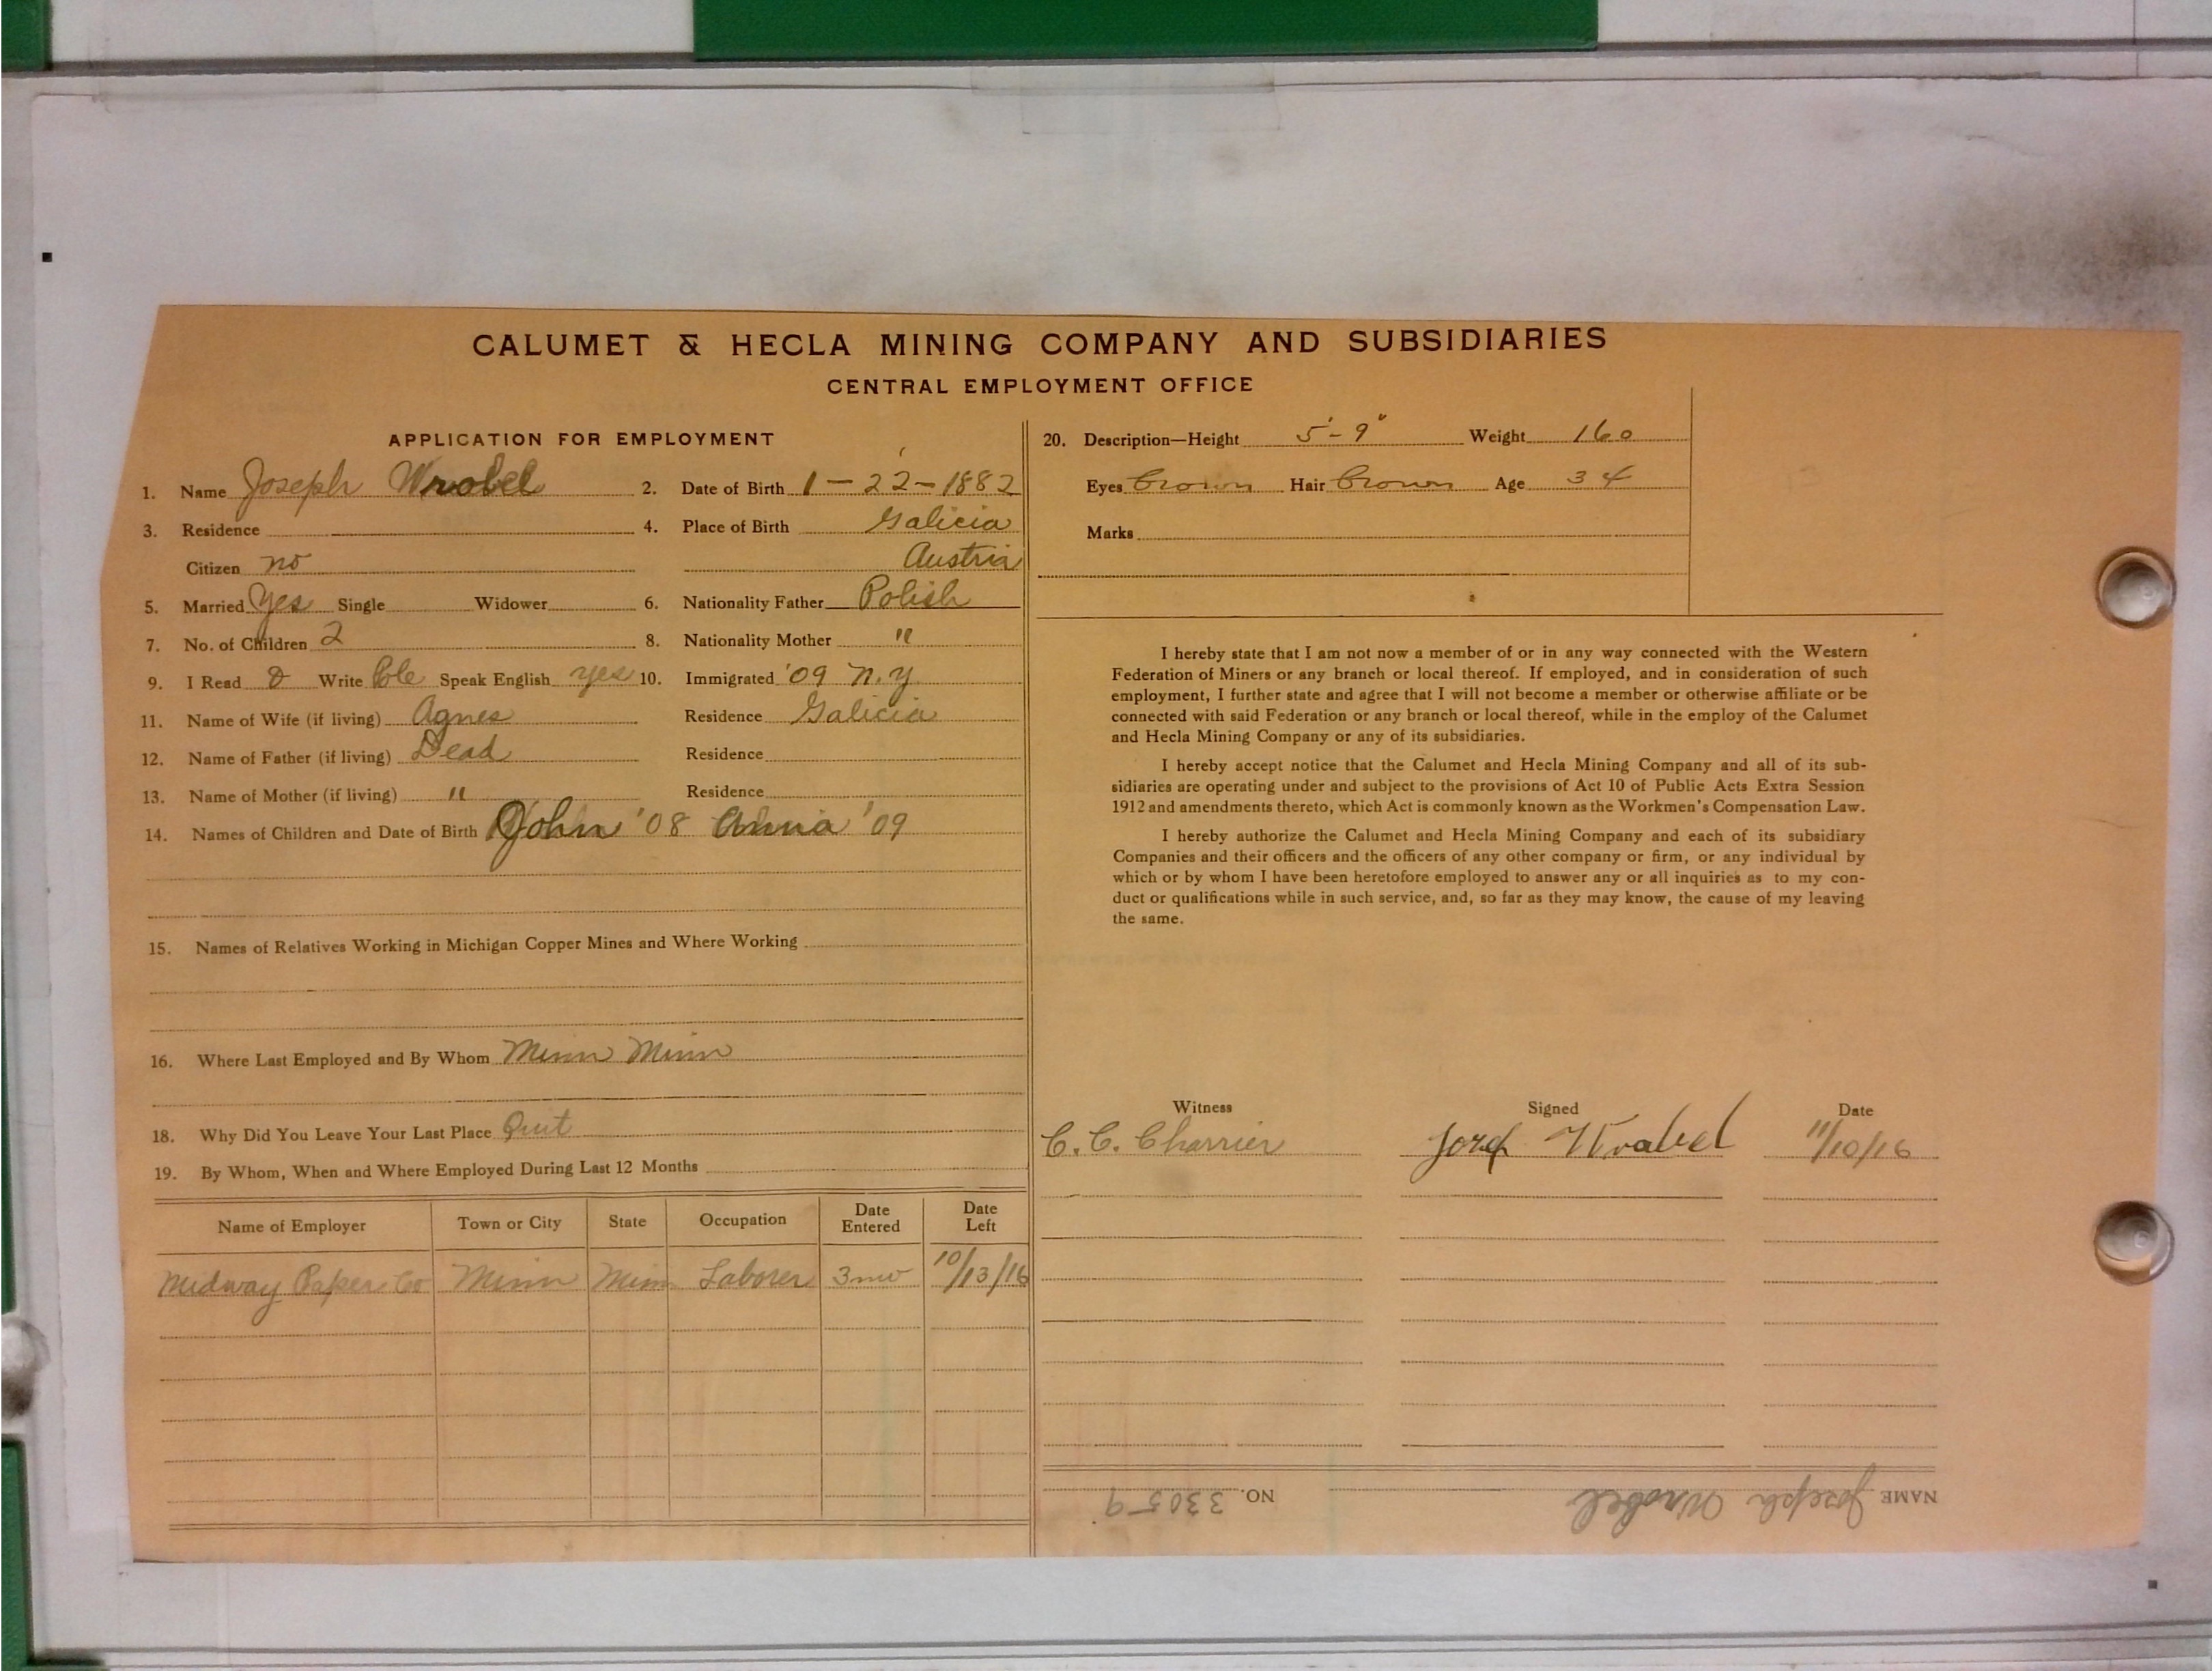 CALUMET & HECLA MINING COMPANY AND SUBSIDIARIES
CENTRAL EMPLOYMENT OFFICE
APPLICATION FOR EMPLOYMENT
1. Name Joseph Wrobel 2. Date of Birth 1-22-1882
3. Residence 4. Place of Birth Galicia
Citizen no Austria
5. Married yes Single Widower 6. Nationality Father Polish
7. No. of Children 2 8. Nationality Mother "
9. I Read & Write Pole Speak English yes 10. Immigrated '09 N.Y
11. Name of Wife (if living) Agnes Residence Galicia
12. Name of Father (if living) Dead Residence
13. Name of Mother (if living) " Residence
14. Names of Children and Date of Birth John '08 Anna '09
15. Names of Relatives Working in Michigan Copper Mines and Where Working
16. Where Last Employed and By Whom Minn Minn
18. Why Did You Leave Your Last Place Quit
19. By Whom, When and Where Employed During Last 12 Months
Name of Employer Town or City State Occupation Date Entered Date Left
Midway Paper Co Minn Minn Laborer 3mo 10/13/16
20. Description—Height 5'-9" Weight 160
Eyes Brown Hair Brown Age 34
Marks
I hereby state that I am not now a member of or in any way connected with the Western
Federation of Miners or any branch or local thereof. If employed, and in consideration of such
employment, I further state and agree that I will not become a member or otherwise affiliate or be
connected with said Federation or any branch or local thereof, while in the employ of the Calumet
and Hecla Mining Company or any of its subsidiaries.
I hereby accept notice that the Calumet and Hecla Mining Company and all of its sub-
sidiaries are operating under and subject to the provisions of Act 10 of Public Acts Extra Session
1912 and amendments thereto, which Act is commonly known as the Workmen's Compensation Law.
I hereby authorize the Calumet and Hecla Mining Company and each of its subsidiary
Companies and their officers and the officers of any other company or firm, or any individual by
which or by whom I have been heretofore employed to answer any or all inquiries as to my con-
duct or qualifications while in such service, and, so far as they may know, the cause of my leaving
the same.
Witness Signed Date
C. C. Charrier Jozef Wrobel 11/10/16
NAME Joseph Wrobel NO. 33059